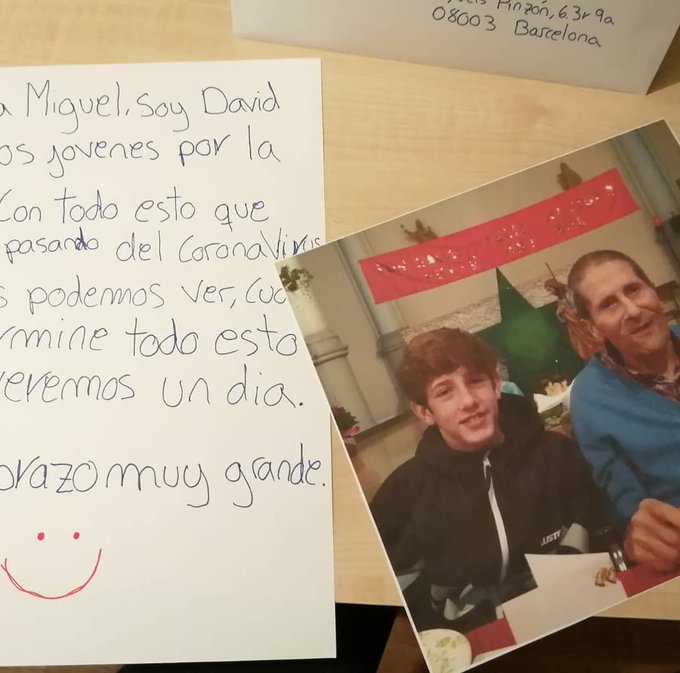 Pinzón, 6. 3r 9a
08003 Barcelona
a Miguel, Soy David
os jovenes por la
Con todo esto que
pasando del CoronaVirus
s podemos ver, cua
rmine todo esto
veremos un dia.
brazo muy grande.